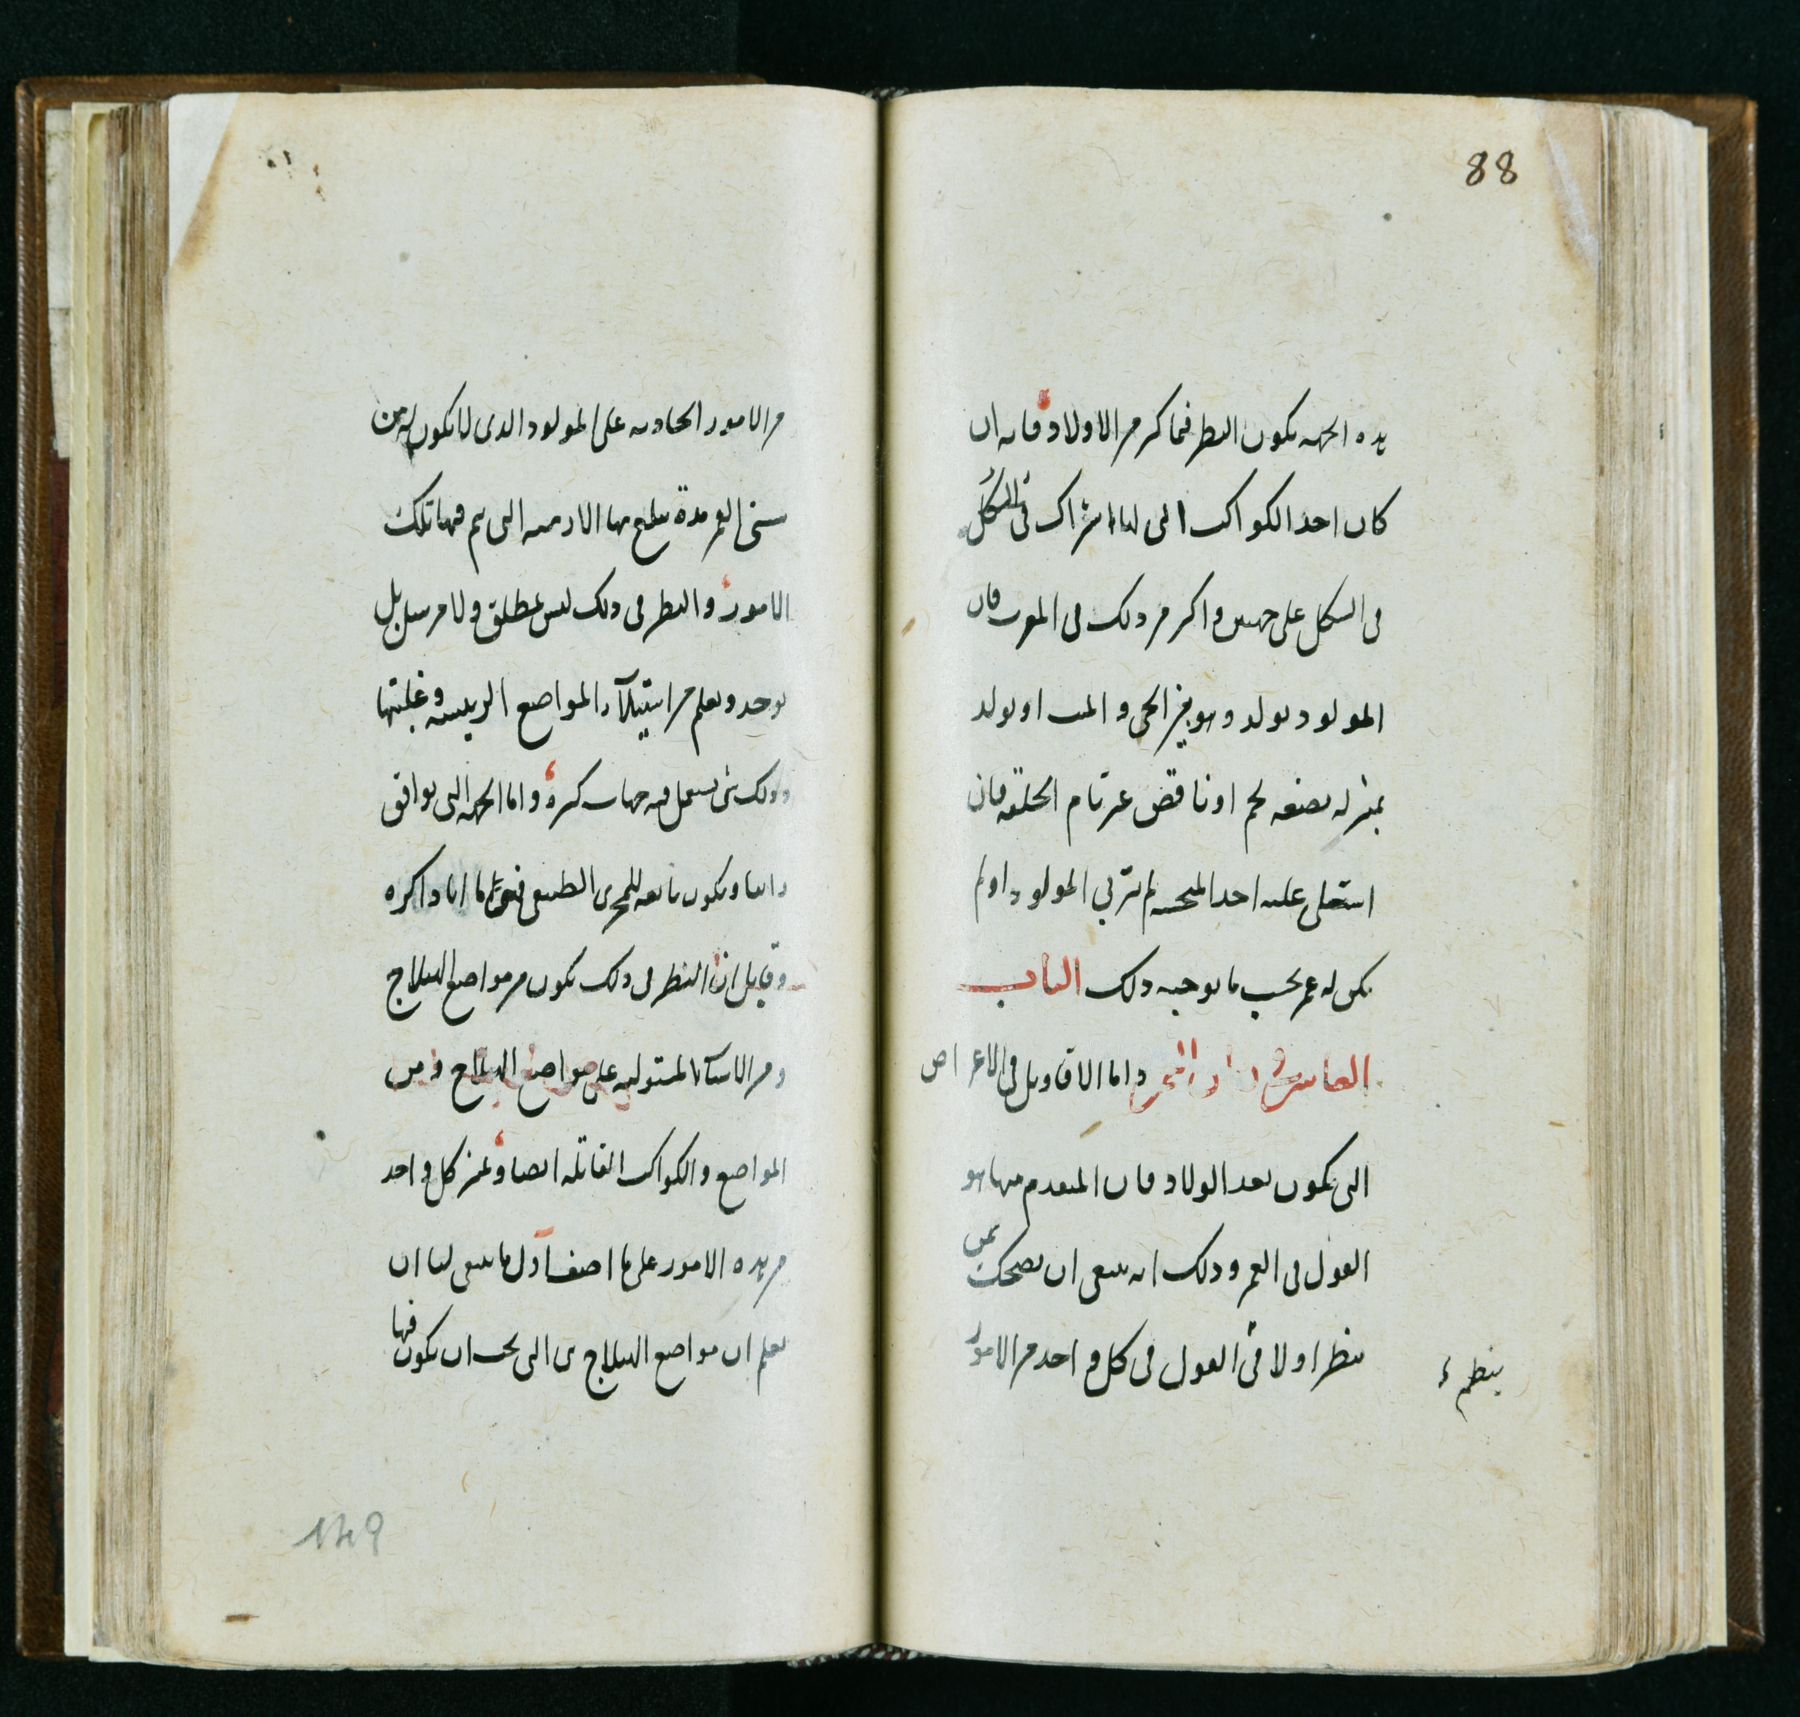 88
هذه الجهه يكون النظر فيما كثر من الاولاد فانه ان
كان احد الكواكب التى لها اشتراك فى الشكل
فى الشكل على جهتين واكثر من ذلك فى الموت فان
المولود يولد وهو بين الحى والميت او يولد
بمنزله بضعه لحم او ناقص غير تام الخلقه فان
استعلى عليه احد المنحسه لم يتربى المولود او لم
يكن له عمر بحسب ما يوجبه ذلك الباب
العاشر فى واما الاقاويل فى الاعراض
التى يكون بعد الولاد فان المتقدم منها هو
القول فى العمر وذلك انه ينبغى ان يضحك ممن
ينظر اولا فى القول فى كل واحد من الامور
من الامور الحادثه على المولود الذى لا يكون له من
سنى العمر مدة يبلغ بها الازمنه التى يتم فيها تلك
الامور والنظر فى ذلك ليس بمطلق ولا مرسل بل
يوجد ويعلم من استيلآء المواضع الرييسه وغلبتها
وذلك شى يستعمل فيه جهات كثيره واما الجهه التى يوافق
راينا ويكون تابعه للمجرى الطبيعى فهى ما انا ذاكره
وقايل ان النظر فى ذلك يكون من مواضع الهيلاج
ومن الاشيآ المستوليه على مواضع الهيلاج ومن
المواضع والكواكب القاتله ايضا وتميز كل واحد
من هذه الامور على ما اصف اول ما ينبغى لنا ان
نعلم ان مواضع الهيلاج هى التى يجب ان يكون فيها
149